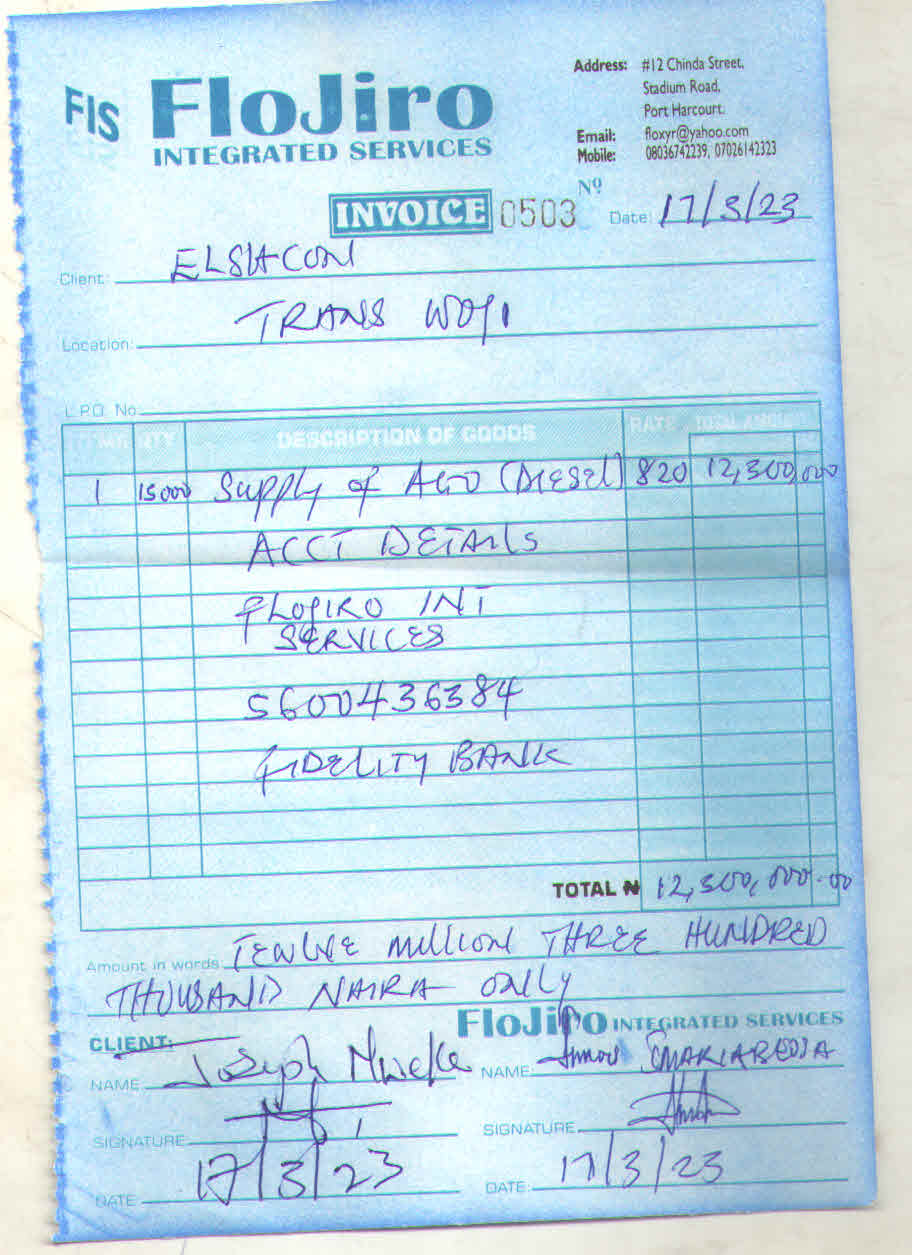 FIS FloJiro
INTEGRATED SERVICES
Address: #12 Chinda Street,
Stadium Road,
Port Harcourt.
Email: floxyr@yahoo.com
Mobile: 08036742239, 07026142323
INVOICE 0503 Nº Date: 17/3/23
Client: ELSHCON
Location: TRANS WOJI
L.P.O. No
QTY DESCRIPTION OF GOODS RATE TOTAL AMOUNT
1 15000 Supply of AGO (Diesel) 820 12,300,000
ACCT DETAILS
FLOJIRO INT
SERVICES
5600436384
FIDELITY BANK
TOTAL ₦ 12,300,000.00
Amount in words: TEWLVE million THREE HUNDRED
THOUSAND NAIRA ONLY
CLIENT: FloJiro INTEGRATED SERVICES
NAME Joseph NAME:
SIGNATURE SIGNATURE
DATE 17/3/23 DATE: 17/3/23